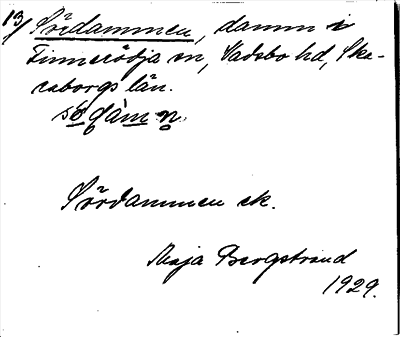 13/ Sördammen, damm i
Finnerödja sn, Vadsbo hd, Ska-
raborgs län.
Sördammen ek.
Maja Bergstrand
1929.